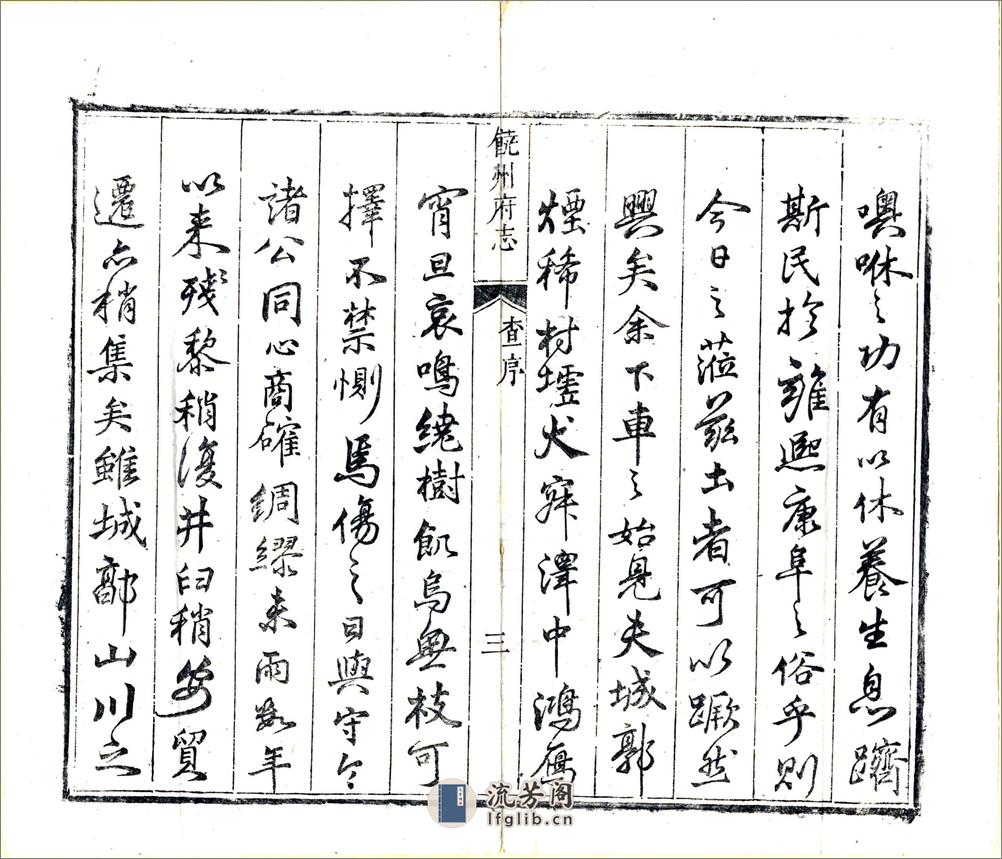 噢咻之功有以休養生息躋
斯民於雍熙康阜之俗乎則
今日之蒞茲土者可以蹶然
興矣余下車之始見夫城郭
煙稀村墟犬寂澤中鴻雁
饒州府志
查序
三
宵旦哀鳴繞樹飢烏無枝可
擇不禁惻焉傷之日與守令
諸公同心商確綢繆未雨數年
以來殘黎稍復井臼稍安貿
遷亦稍集矣雖城郭山川之
流芳阁
lfglib.cn